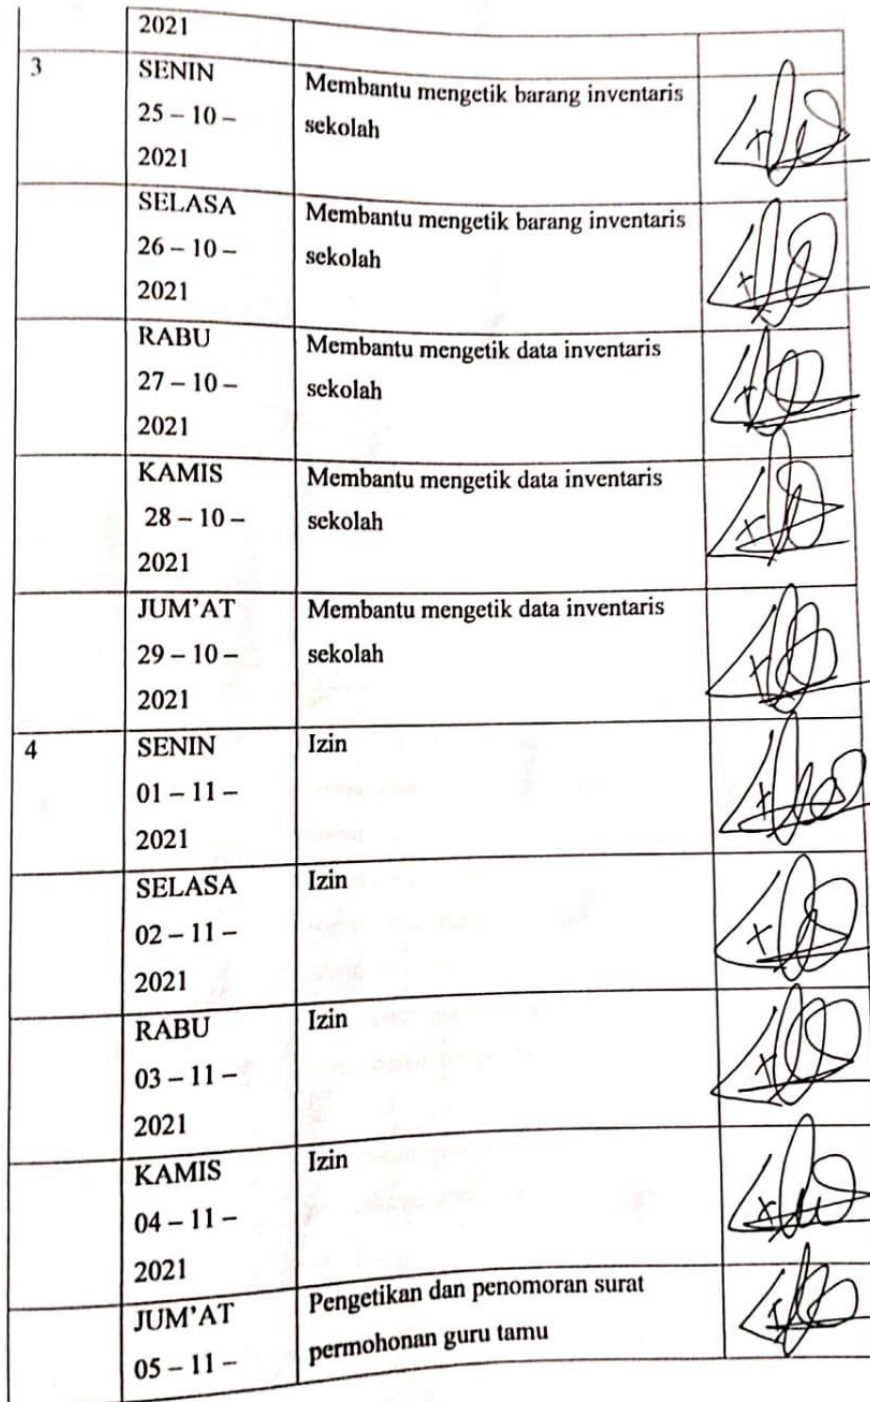 2021
3
SENIN
25 – 10 –
2021
Membantu mengetik barang inventaris
sekolah
SELASA
26 – 10 –
2021
Membantu mengetik barang inventaris
sekolah
RABU
27 – 10 –
2021
Membantu mengetik data inventaris
sekolah
KAMIS
28 – 10 –
2021
Membantu mengetik data inventaris
sekolah
JUM'AT
29 – 10 –
2021
Membantu mengetik data inventaris
sekolah
4
SENIN
01 – 11 –
2021
Izin
SELASA
02 – 11 –
2021
Izin
RABU
03 – 11 –
2021
Izin
KAMIS
04 – 11 –
2021
Izin
JUM'AT
05 – 11 –
Pengetikan dan penomoran surat
permohonan guru tamu